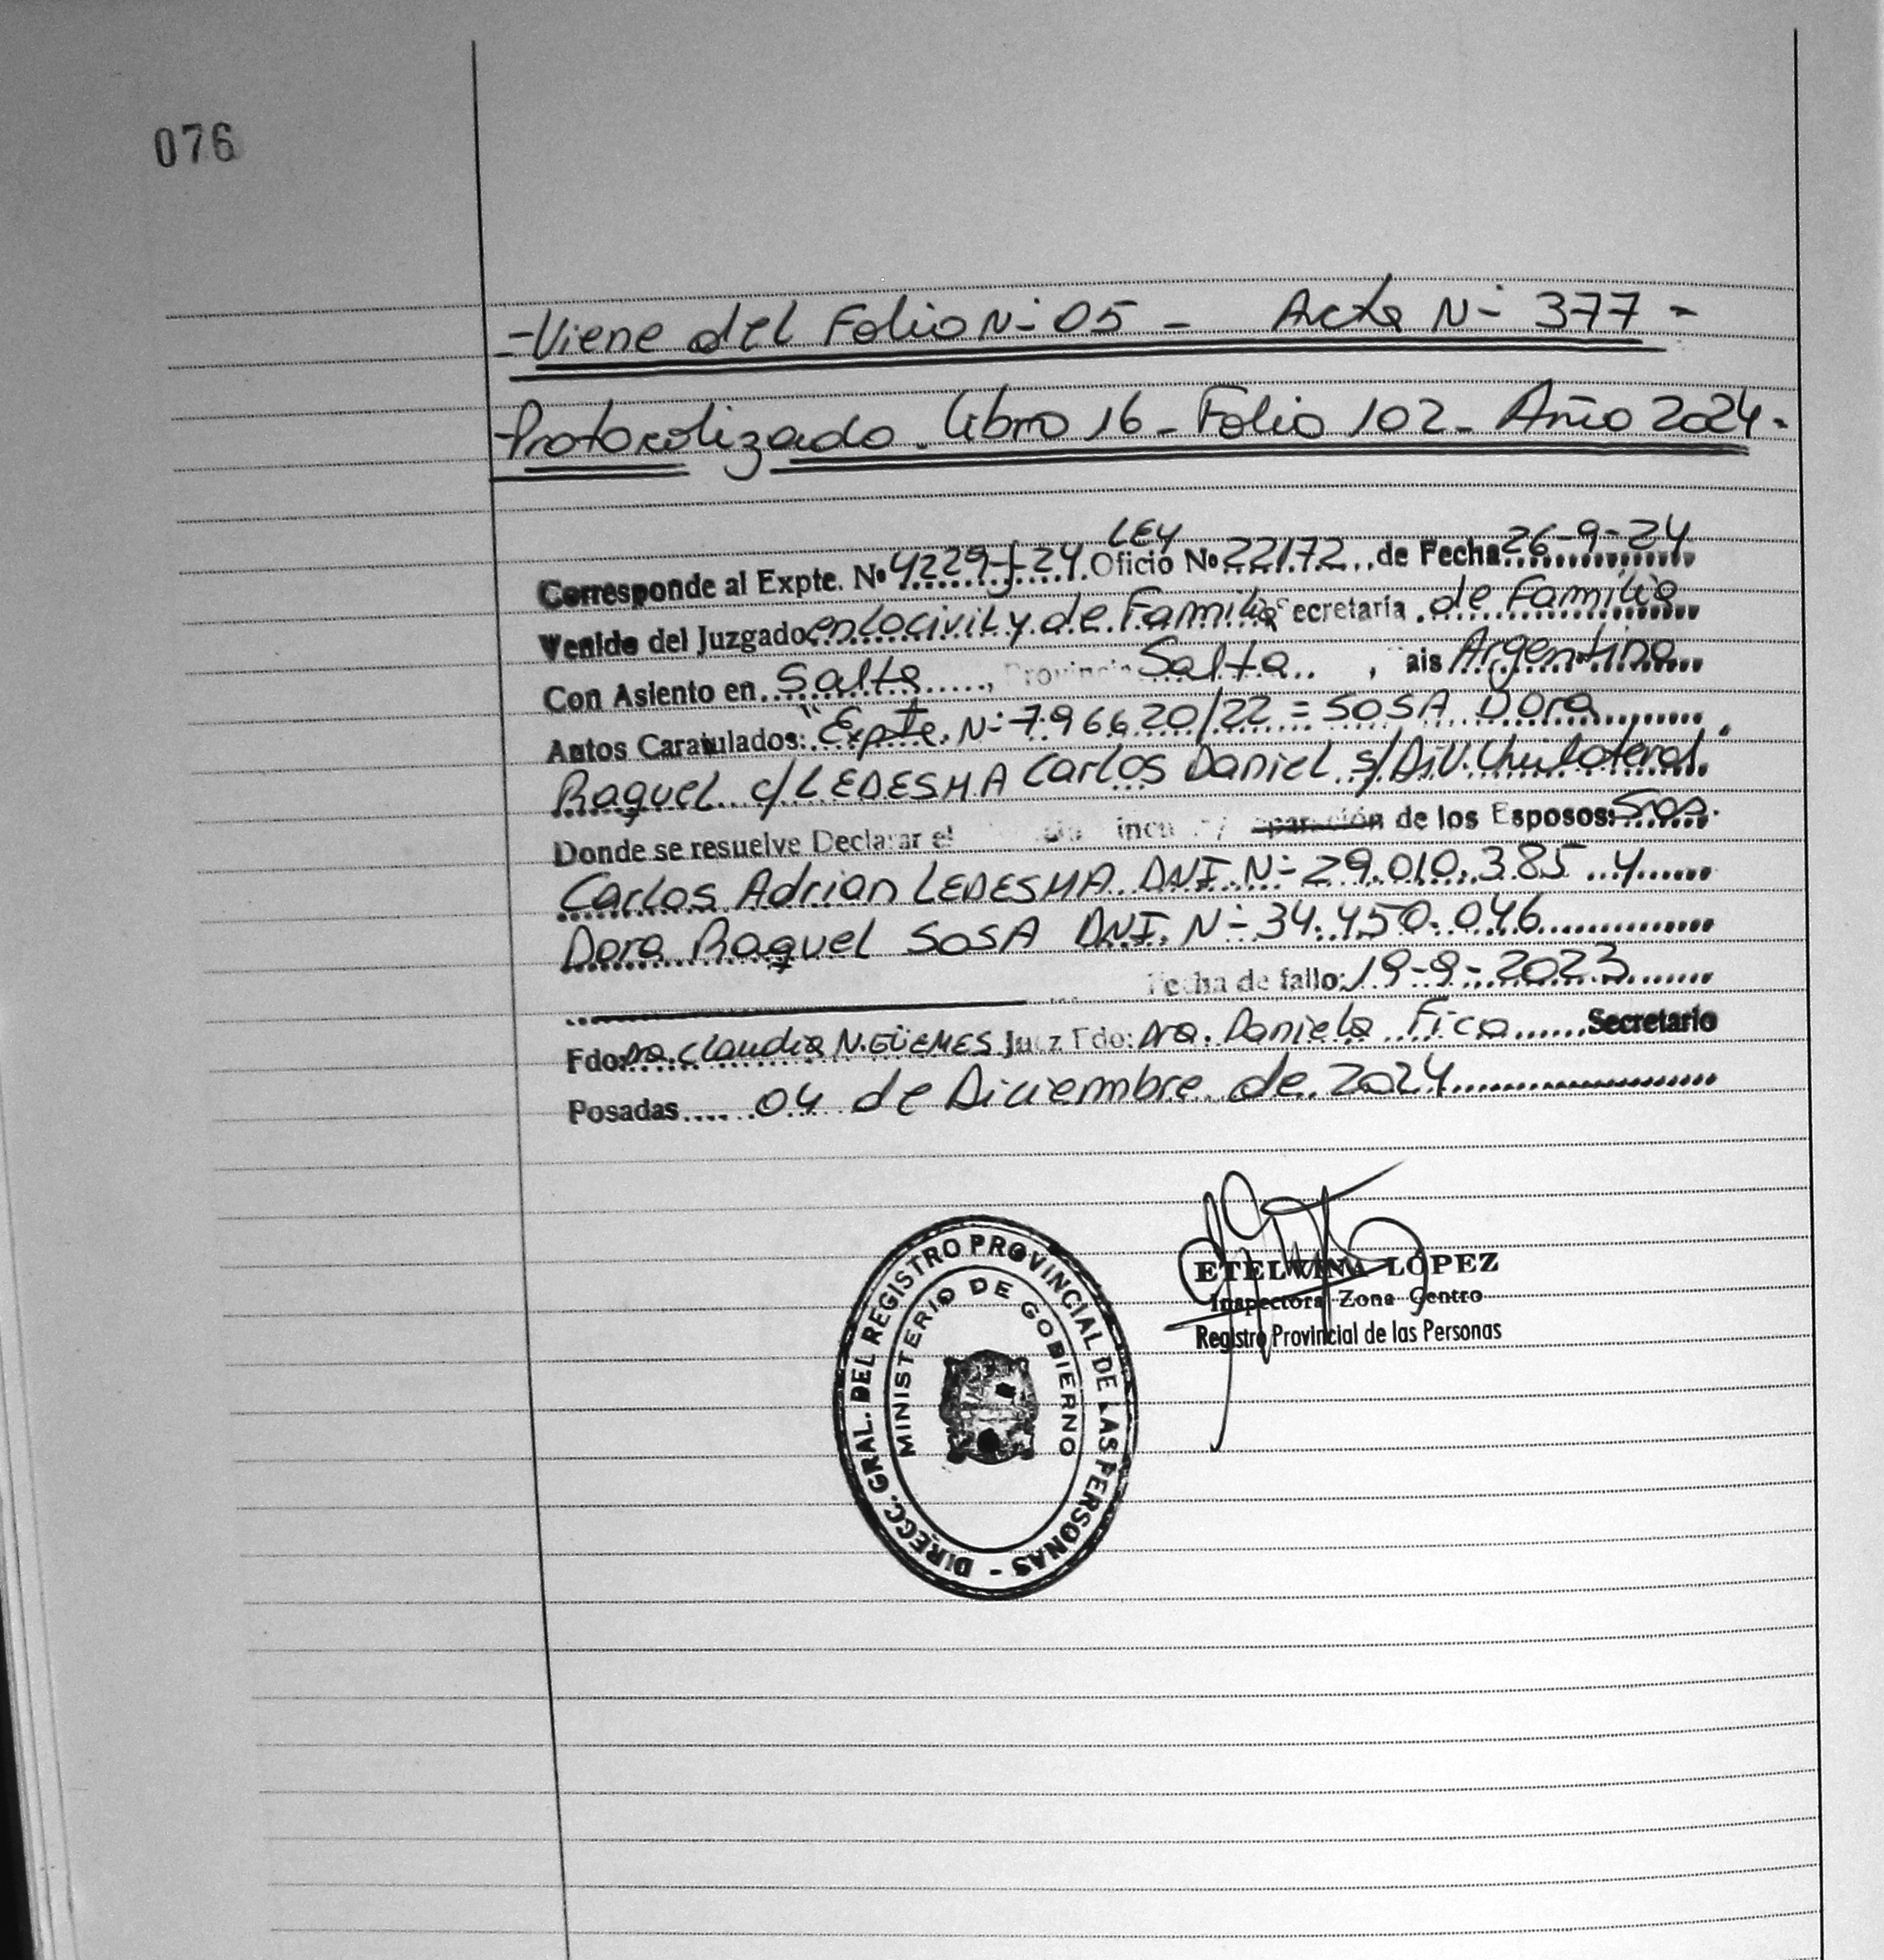 076
-Viene del Folio N- 05 - Acta N- 377 -
Protocolizado. Libro 16 - Folio 102 - Año 2024 -
LEY
Corresponde al Expte. No 4229-J-24. Oficio No 22172 de Fecha 26-9-24
Venido del Juzgado en lo civil y de Familia Secretaría de Familia
Con Asiento en Salta, Provincia Salta, ais Argentina
Autos Caratulados: "Expte. N- 796620/22 = SOSA Dora
Raquel c/ LEDESMA Carlos Daniel s/ Div. Unilateral"
Donde se resuelve Declarar el de los Esposos: Sros.
Carlos Adrian LEDESMA DNI. N- 29.010.385 y
Dora Raquel SOSA DNI. N- 34.450.046
Fecha de fallo: 19-9-2023
Fdo: Dra. Claudia N. GÜEMES Juez Fdo: Dra. Daniela Fica Secretario
Posadas 04 de Diciembre de 2024
ETELVINA LÓPEZ
Inspectora Zona Centro
Registro Provincial de las Personas
DIRECC. GRAL. DEL REGISTRO PROVINCIAL DE LAS PERSONAS -
MINISTERIO DE GOBIERNO